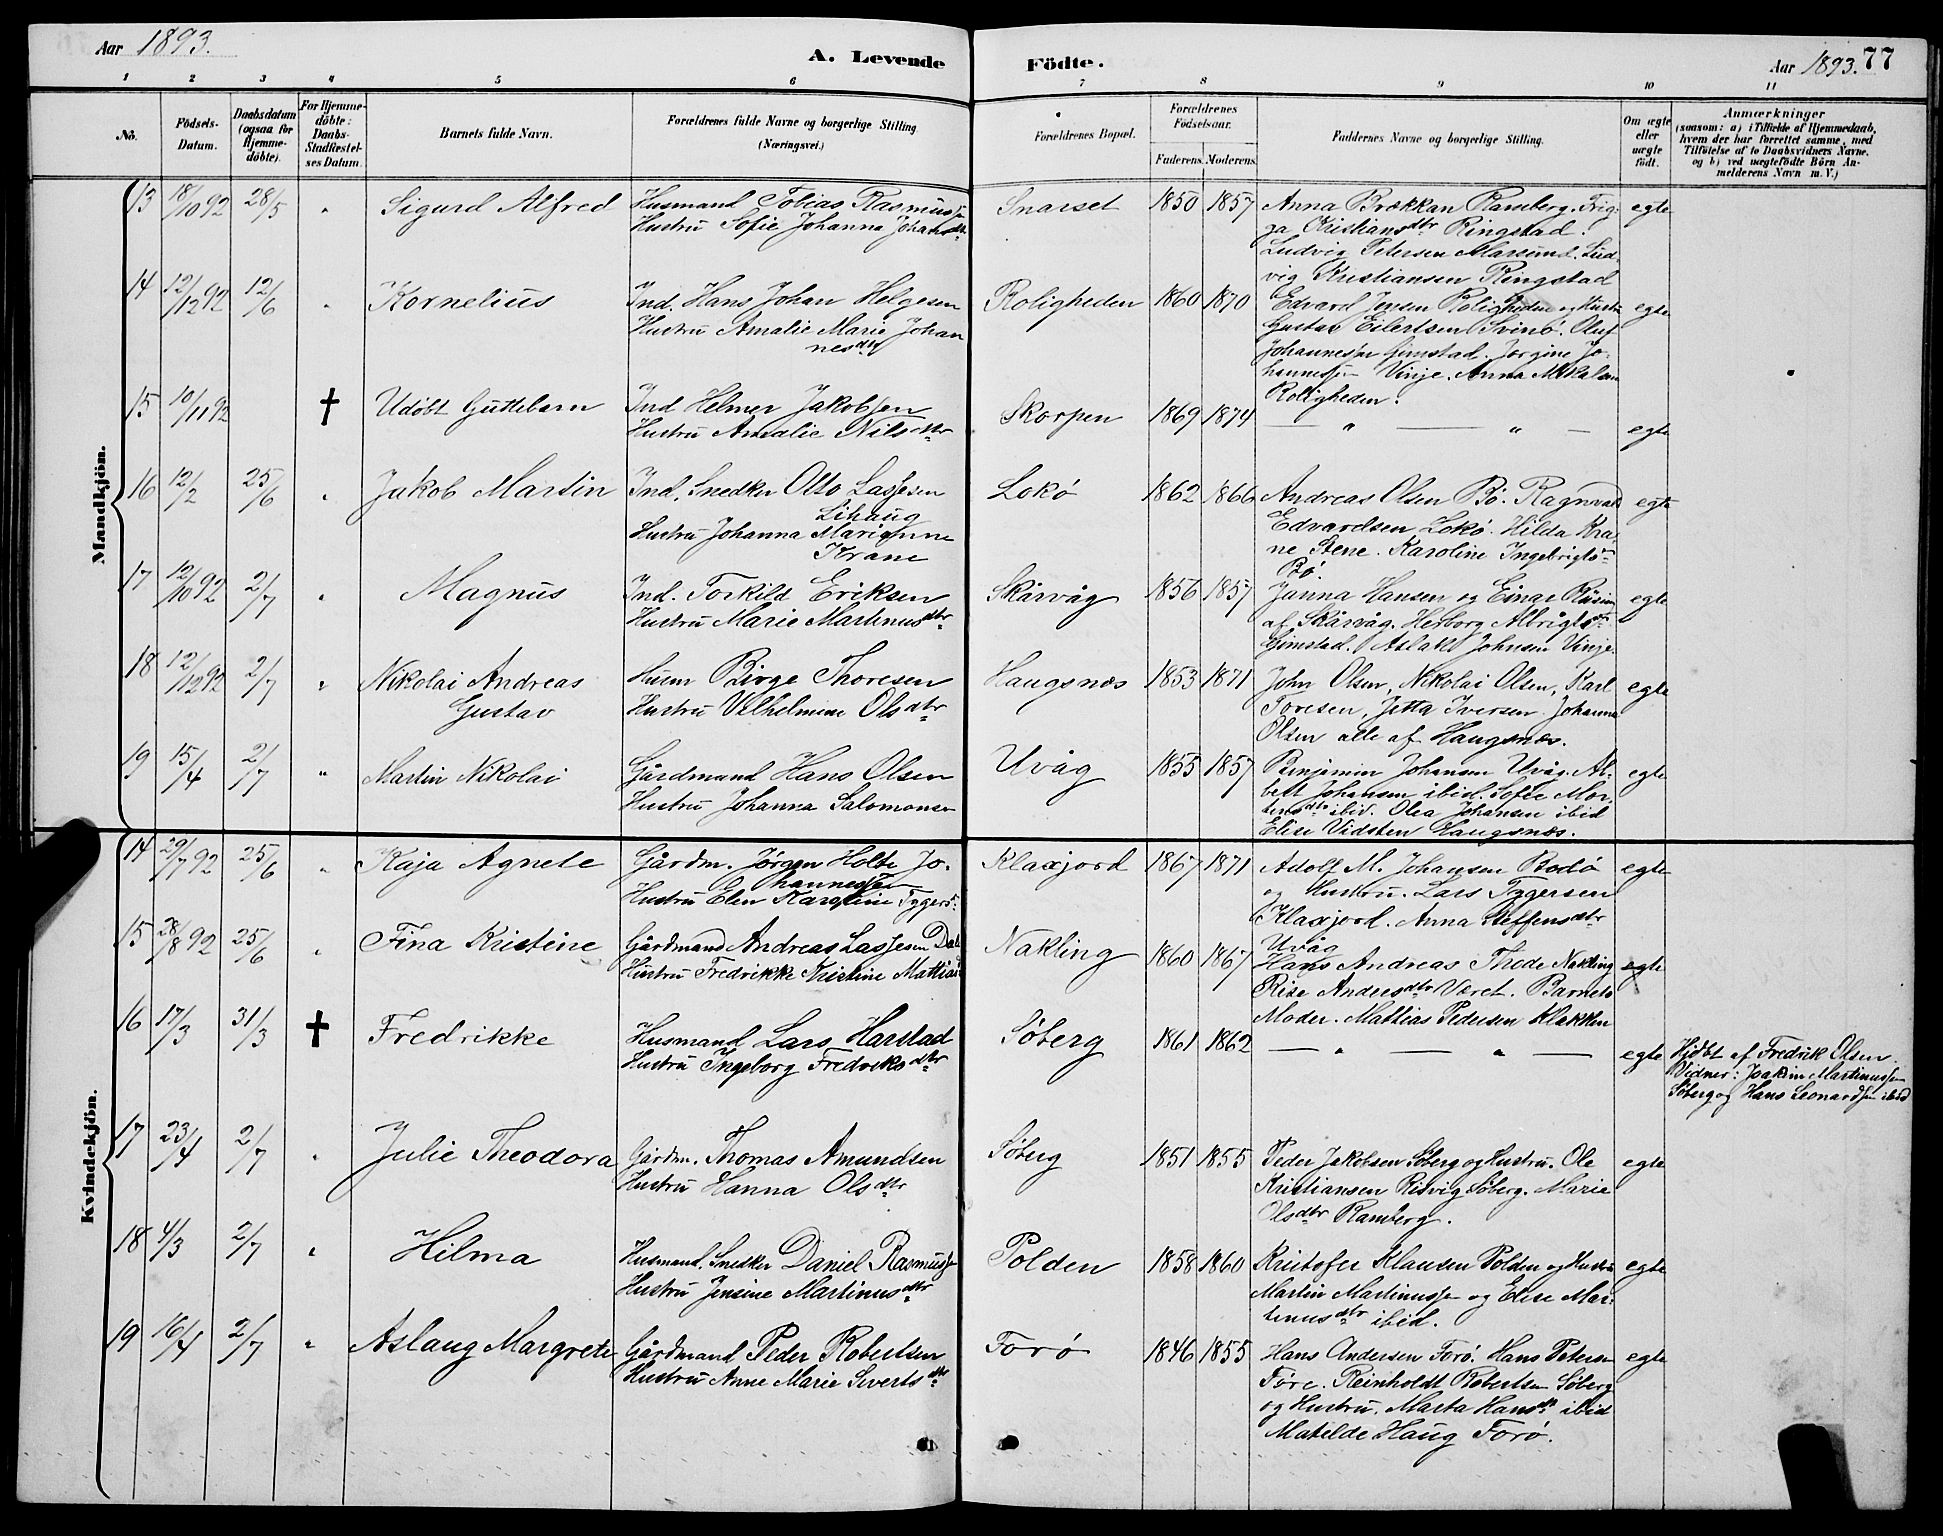 Aar 1893.
A. Levende
Födte.
Aar 1893. 77
1 2 3 4 5 6 7 8 9 10 11
No.
Födsels-
Datum.
Daabsdatum
(ogsaa for
Hjemme-
döbte).
For Hjemme-
döbte:
Daabs-
Stadfæstel-
ses Datum.
Barnets fulde Navn.
Forældrenes fulde Navne og borgerlige Stilling.
(Næringsvei.)
Forældrenes Bopæl.
Forældrenes
Födselsaar.
Faderens. Moderens.
Faddernes Navne og borgerlige Stilling.
Om ægte
eller
uægte
födt.
Anmærkninger
(saasom: a) i Tilfælde af Hjemmedaab,
hvem der har forrettet samme, med
Tilföielse af to Daabsvidners Navne,
og b) ved uægtefödte Börn An-
melderens Navn m. V.)
Mandkjön.
13 18/10 92 28/5 " Sigurd Alfred
Husmand Tobias Rasmussen
Hustru Sofie Johanna Johansdtr
Snarset 1850 1857
Anna Brækkan Ramberg. Trig-
ga Kristiansdtr Ringstad.
Ludvig Petersen Marsund. Lud-
vig Kristiansen Ringstad
egte
14 12/12 92 12/6 " Kornelius
Ind. Hans Johan Helgesen
Hustru Amalie Marie Johan
nesdtr
Roligheden 1860 1870
Edvard Jensen Roligheden og Hustru
Gustav Eilertsen Svinö. Oluf
Johannessen Gimstad. Jørgine Jo-
hannessen Vinje. Anna Mikalsen
Roligheden.
egte
15 10/11 92 † Udöbt Guttebarn
Ind Helmer Jakobsen
Hustru Amalie Nilsdtr
Skorpen 1869 1874
— " — " —
egte
16 12/2 25/6 " Jakob Martin
Ind. Snedker Otto Lassesen
Lihaug
Hustru Johanna Marianne
Krane
Lokö 1862 1866
Andreas Olsen Bö. Ragnvald
Edvardsen Lokö. Hilda Kra-
ne Stene. Karoline Ingebrigts-
Bö.
egte
17 12/10 92 2/7 " Magnus
Ind. Torkild Eriksen
Hustru Marie Martinusdtr
Skårvåg 1856 1857
Janna Hansen og Einar
af Skårvåg. Herborg Albrigts
Gimstad. Aslak Johnsen Vinje.
egte
18 12/12 92 2/7 " Nikolai Andreas
Gustav
Husm Birge Thoresen
Hustru Vilhelmine Olsdtr
Haugsnæs 1853 1871
John Olsen, Nikolai Olsen, Karl
Toresen, Jetta Iversen. Johanna
Olsen alle af Haugsnæs.
egte
19 15/4 2/7 " Martin Nikolai
Gårdmand Hans Olsen
Hustru Johanna Salomonsen
Uvåg 1855 1857
Benjamin Johansen Uvåg. Al-
bert Johansen ibid. Sofie Mor-
tensdtr ibid. Olea Johansen ibid
Elise Vidsten Haugsnæs.
egte
Kvindekjön.
14 29/7 92 25/6 " Kaja Agnete
Gårdm. Jørgen Holte Jo-
hannessen
Hustru Elen Karoline Tygers
Klaxjord 1867 1871
Adolf M. Johansen Bodö
og Hustru. Lars Tygersen
Klaxjord. Anna Steffensdtr
Uvåg
egte
15 28/8 92 25/6 " Fina Kristine
Gårdmand Andreas Lassesen Dal
Hustru Fredrikke Kristine Mattias
Nakling 1860 1867
Hans Andreas Thode Nakling
Rise Andersdtr Været. Barnets
Moder. Mathias Pedersen Klakken
egte
16 17/3 31/3 † Fredrikke
Husmand Lars Harstad
Hustru Ingeborg Fredriksdtr
Söberg 1861 1862
— " — " —
egte
Hjdöbt af Fredrik Olsen.
Vidner: Joakim Martinussen
Söberg og Hans Leonardsen ibid
17 23/4 2/7 " Julie Theodora
Gårdm. Thomas Amundsen
Hustru Hanna Olsdtr
Söberg 1851 1855
Peder Jakobsen Söberg og Hustru. Ole
Kristiansen Risvig Söberg. Marie
Olsdtr Ramberg.
egte
18 4/3 2/7 " Hilma
Husmand, Snedker Daniel Rasmussen
Hustru Jensine Martinusdtr
Polden 1858 1860
Kristofer Klausen Polden og Hustru
Martin Martinussen og Elise Mar-
tinusdtr ibid.
egte
19 16/4 2/7 " Aslaug Margrete
Gårdmand Peder Robertsen
Hustru Anne Marie Sivertsdtr
Forö 1846 1855
Hans Andersen Forö. Hans Petersen
Före. Reinholdt Robertsen Söberg
og Hustru. Marta Hansdtr ibid
Matilde Haug Forö.
egte